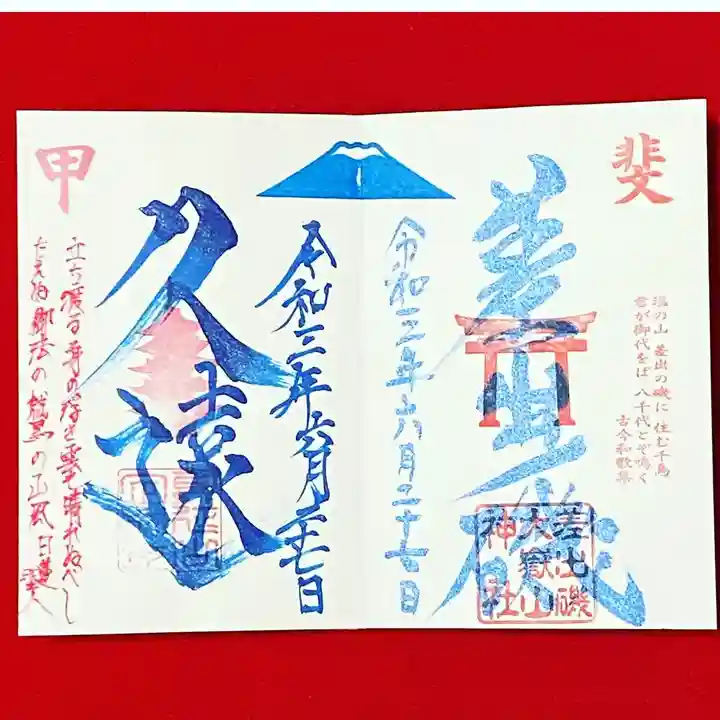 斐
塩の山 差出の磯に 住む千鳥
君が御代をば 八千代とぞ鳴く
古今和歌集
差出磯
差出磯
大嶽山
神社
令和三年六月二十七日
令和三年六月二十七日
久遠
甲
立ち渡る身の浮き雲も晴れぬべし
たえぬ御法の鷲の山風